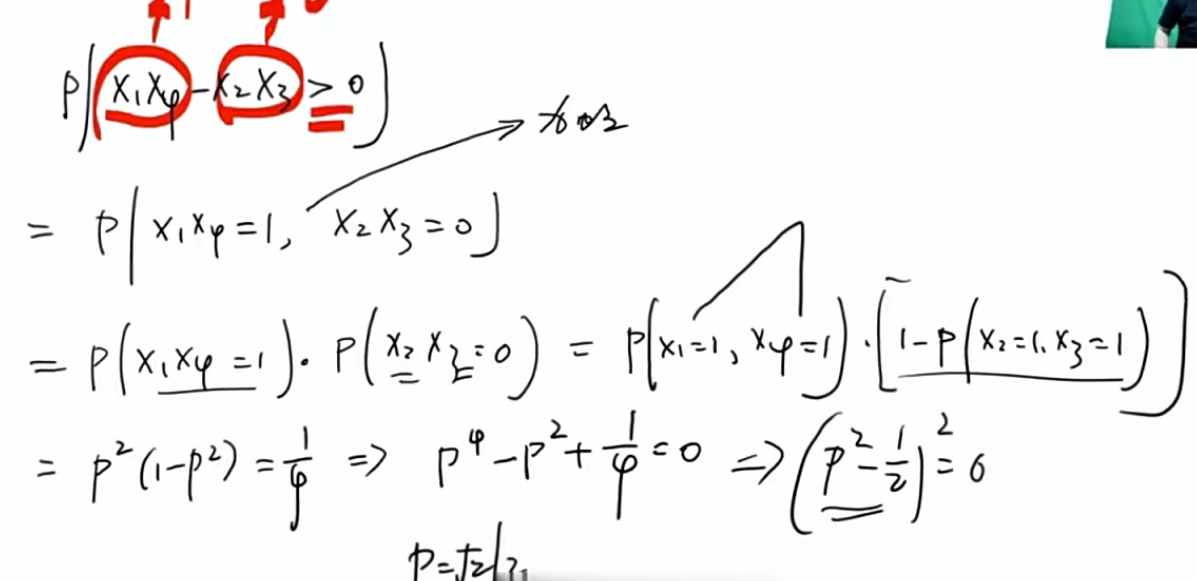 P(X₁X₄-X₂X₃>0)
= P(X₁X₄=1, X₂X₃=0)
= P(X₁X₄=1)·P(X₂X₃=0) = P(X₁=1, X₄=1)·[1-P(X₂=1, X₃=1)]
= p²(1-p²)=1/4 => p⁴-p²+1/4=0 => (p²-1/2)²=0
p=√2/2